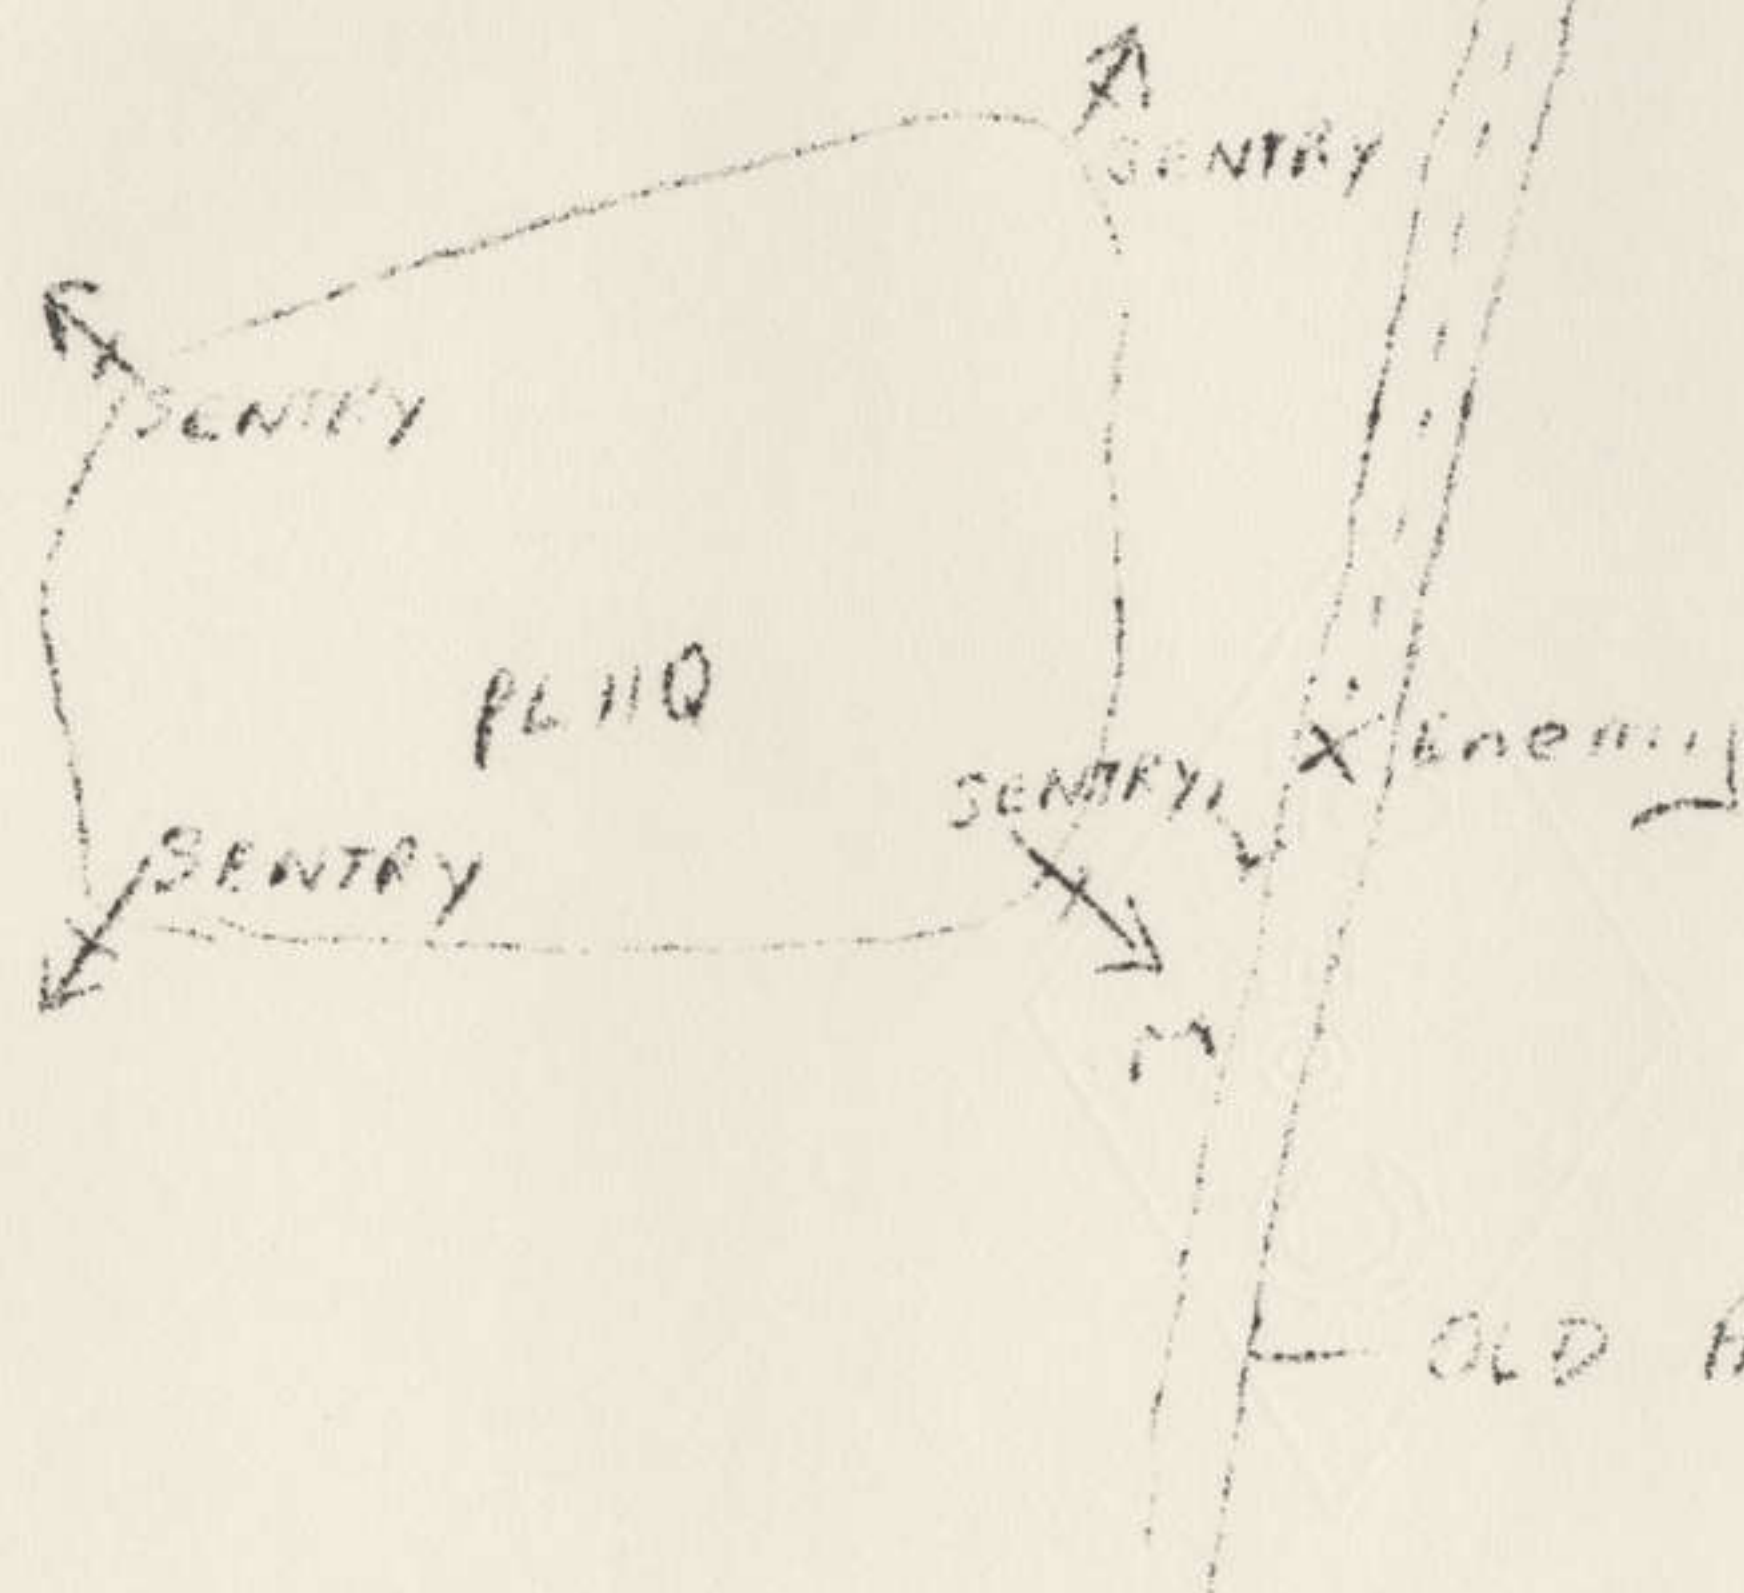 SENTRY
SENTRY
PL HQ
Enemy
SENTRY
SENTRY
M
OLD